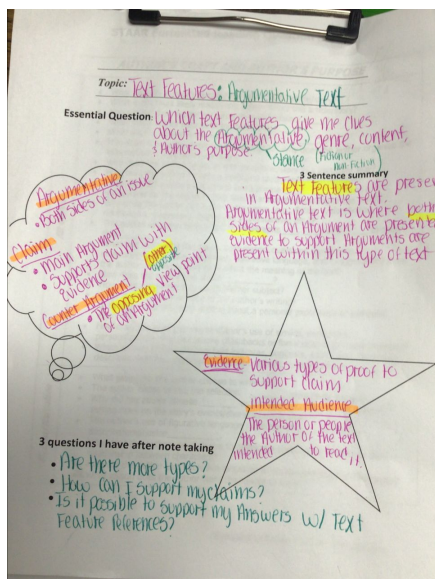 Topic: Text Features: Argumentative Text
Essential Question: Which text Features give me clues
about the Argumentative genre, content,
& Authors purpose.
Stance
Non Fiction
3 Sentence summary
Text Features are presen
in Argumentative text.
Argumentative text is where both
sides of an Argument are presente
evidence to support Arguments are
present within this type of text
Argumentative
• Both sides of an issue
Claim
• Main Argument
• Supports claim with
Evidence
other
opposite
Counter Argument
• The opposing view point
of an Argument
Evidence- Various types of proof to
support claim
Intended Audience
The person or people
the Author of the text
intended to read it.
3 questions I have after note taking
• Are there more types?
• How can I support my claims?
• Is it possible to support my Answers w/ Text
Feature References?